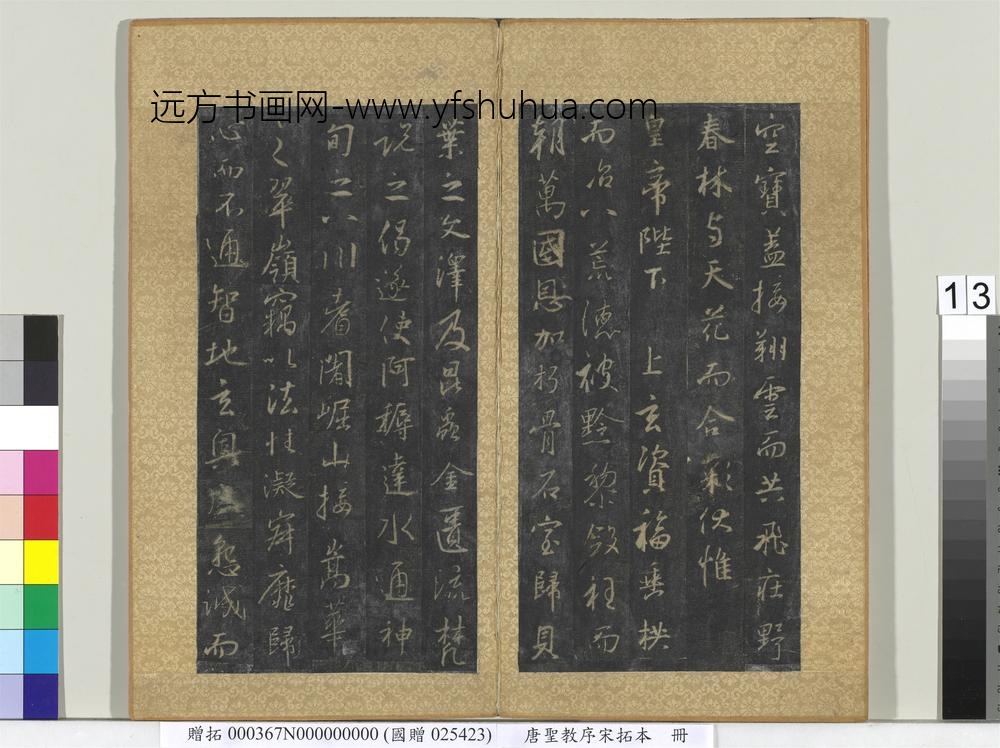 远方书画网-www.yfshuhua.com
空寶蓋接翔雲而共飛在野
春林与天花而合彩伏惟
皇帝陛下 上玄資福垂拱
而治八荒德被黔黎斂衽而
朝萬國恩加朽骨石室歸貝
葉之文澤及昆蟲金匱流梵
説之偈遂使阿耨達水通神
旬之八川耆闍崛山接嵩華
之翠嶺竊以法性凝寂靡歸
心而不通智地玄奥感懇誠而
13
贈拓 000367N000000000 (國贈 025423) 唐聖教序宋拓本 冊